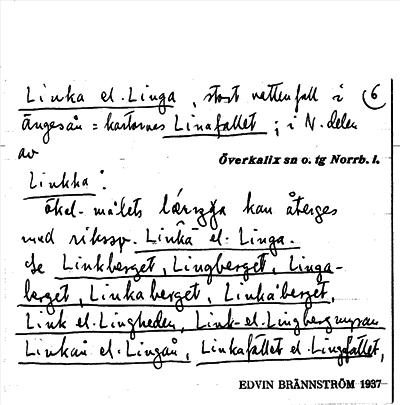 Linka el. Linga, stort vattenfall i (6
ängesån = kartornes Linafallet; i N. delen
av
Överkalix sn o. tg Norrb. l.
Linkka:
ökel-målets kan återges
med riksspr. Linka el. Linga.
Se Linkberget, Lingberget, Linga-
berget, Linkaberget, Linkåberget,
Link el. Lingheden, Link- el. Lingbergmyran
Linkån el. Lingån, Linkafallet el. Lingfallet,
EDVIN BRÄNNSTRÖM 1937